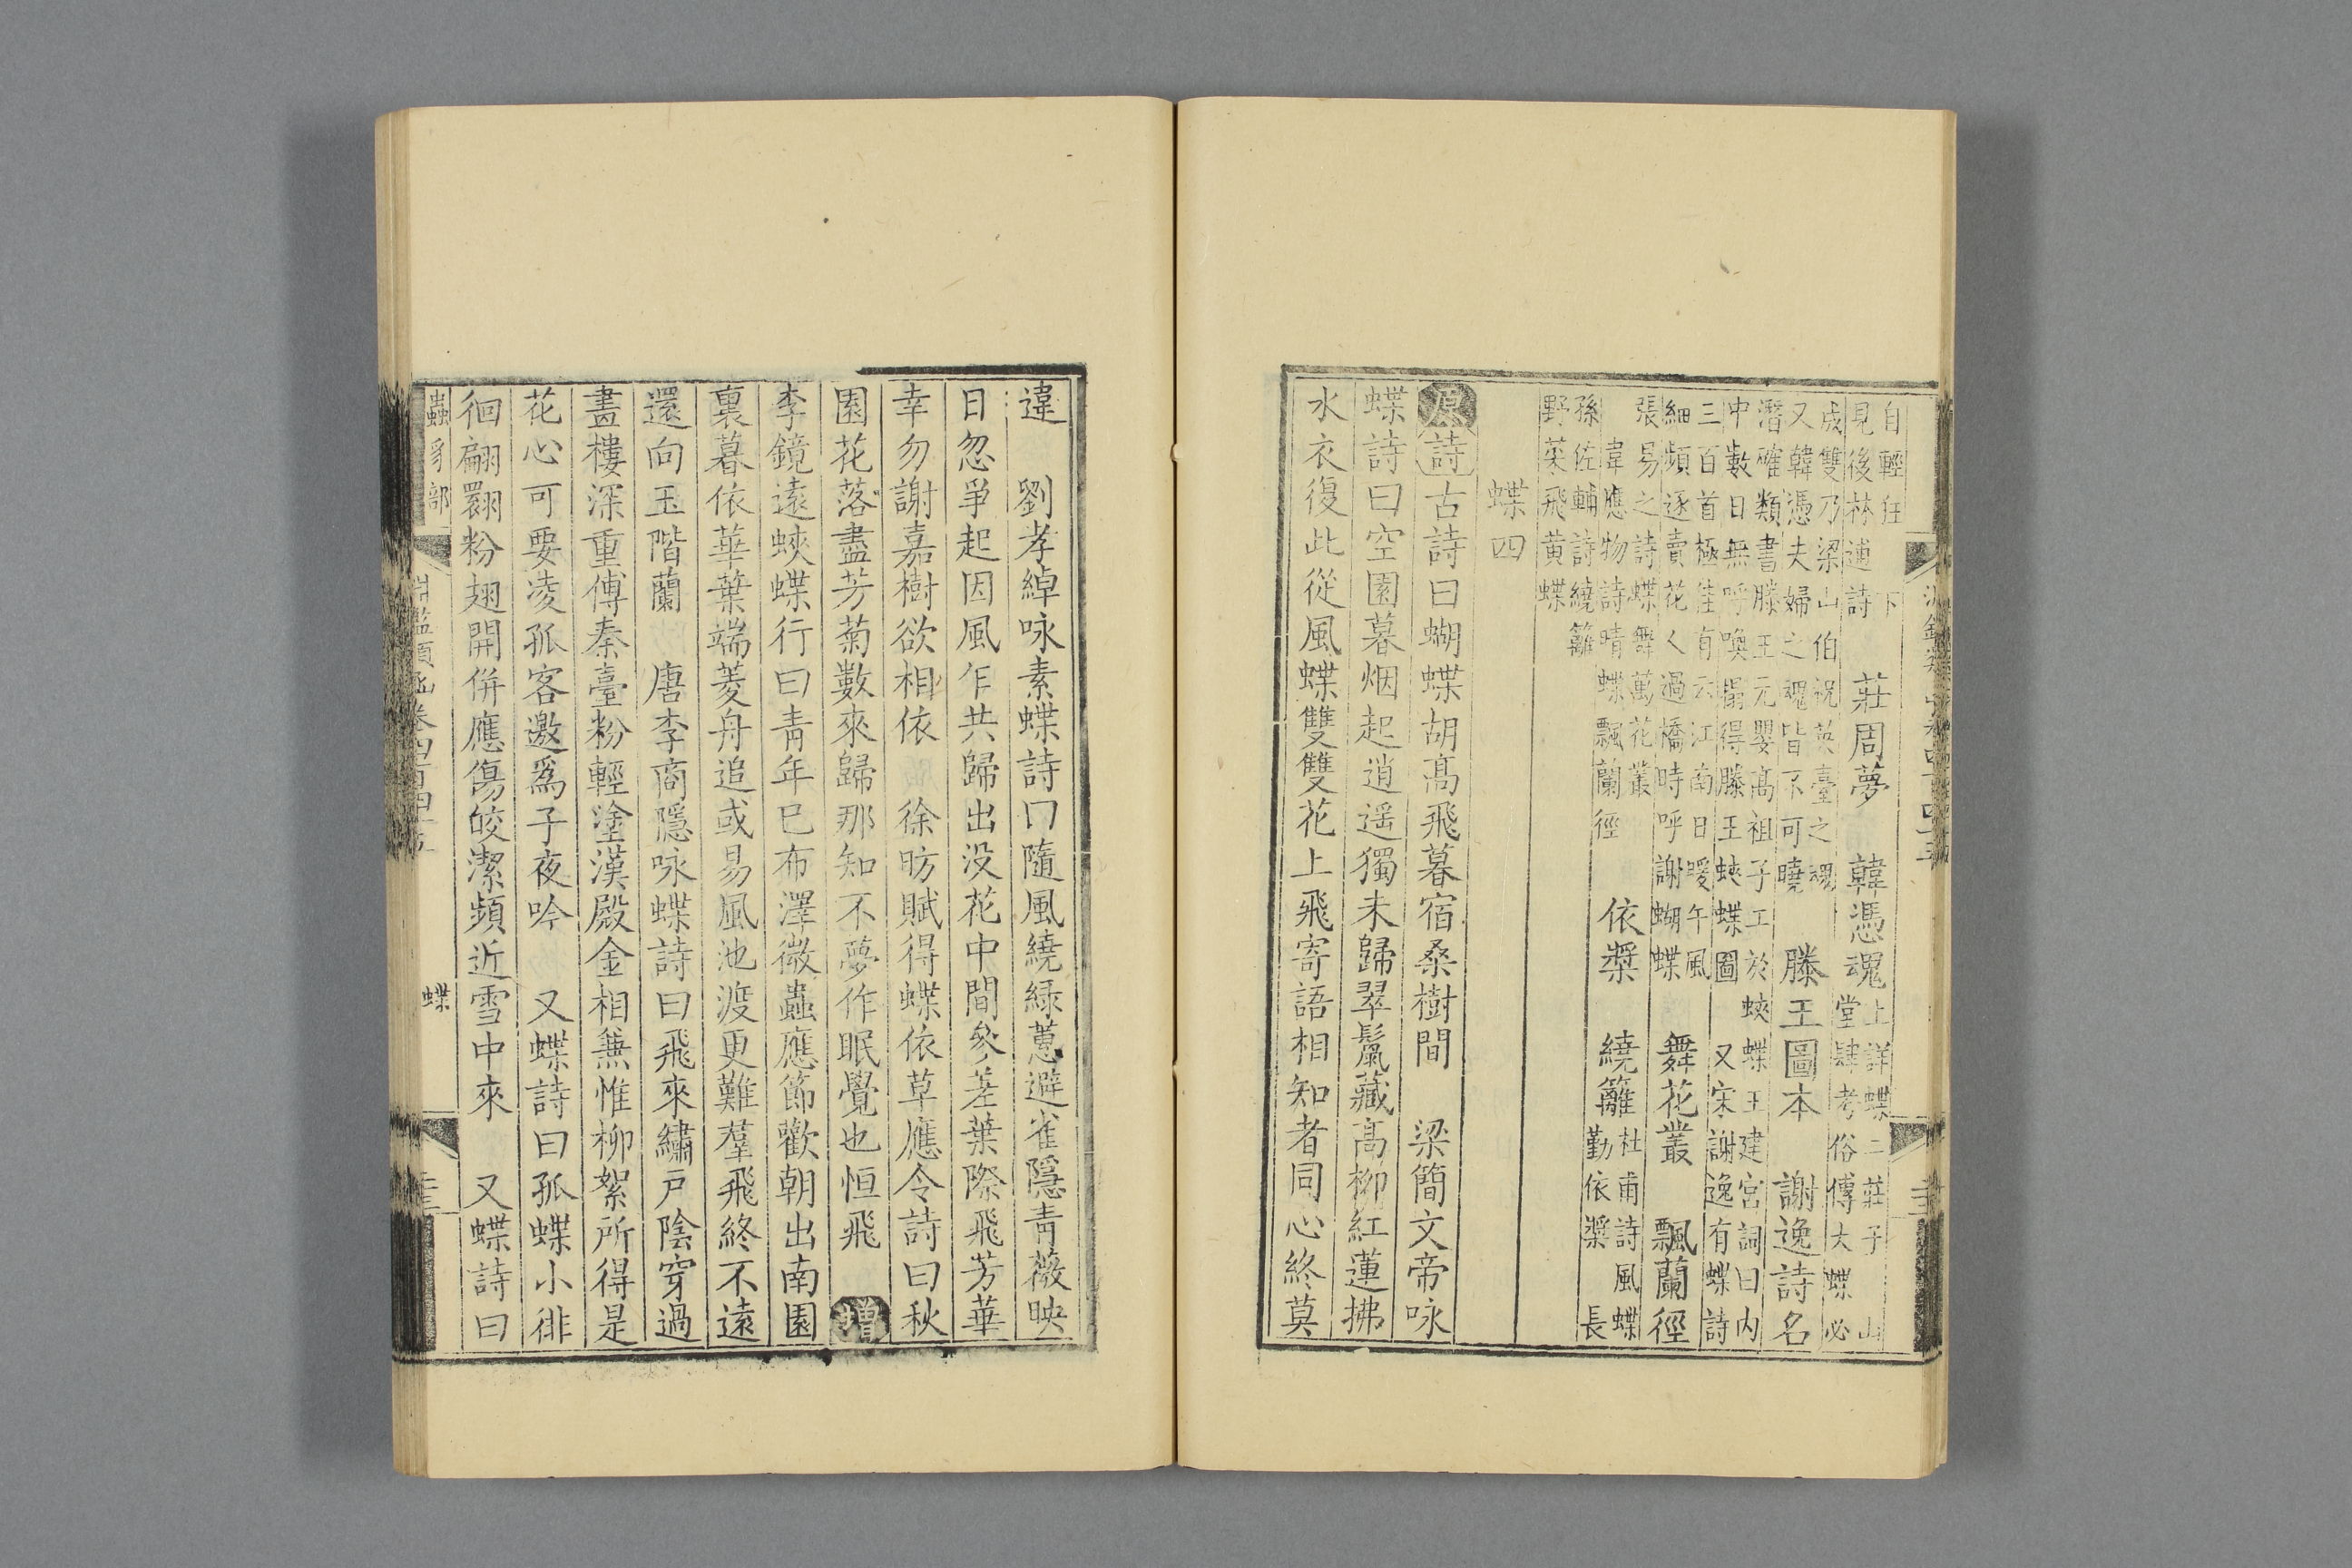 自輕狂 下
見後林逋詩
莊周夢 韓憑魂
上詳蝶二莊子 山
堂肆考俗傳大蝶必
成雙乃梁山伯祝英臺之魂
又韓憑夫婦之魂皆不可曉
滕王圖本 謝逸詩名
潛確類書滕王元嬰高祖子工於蛺蝶王建宮詞曰內
中數日無呼喚搨得滕王蛺蝶圖 又宋謝逸有蝶詩
三百首極佳有云江南日暖午風
細頻逐賣花人過橋時呼謝蝴蝶
舞花叢 飄蘭徑
張易之詩蝶舞萬花叢
韋應物詩晴蝶飄蘭徑
依槳 繞籬
杜甫詩風蝶
勤依槳 長
孫佐輔詩繞籬
野菜飛黃蝶
蝶四
原詩古詩曰蝴蝶胡高飛暮宿桑樹間 梁簡文帝咏
蝶詩曰空園暮烟起逍遥獨未歸翠鬣藏高柳紅蓮拂
水衣復此從風蝶雙雙花上飛寄語相知者同心終莫
違 劉孝綽咏素蝶詩曰隨風繞綠蕙避雀隱青薇映
日忽爭起因風乍共歸出没花中間參差葉際飛芳華
幸勿謝嘉樹欲相依 徐昉賦得蝶依草應令詩曰秋
園花落盡芳菊數來歸那知不夢作眠覺也恒飛 增
李鏡遠蛺蝶行曰青年已布澤微蟲應節歡朝出南園
裏暮依華葉端菱舟追或易風池渡更難羣飛終不遠
還向玉階蘭 唐李商隱咏蝶詩曰飛來繡戸陰穿過
畫樓深重傅秦臺粉輕塗漢殿金相兼惟柳絮所得是
花心可要凌孤客邀爲子夜吟 又蝶詩曰孤蝶小徘
徊翩翾粉翅開併應傷皎潔頻近雪中來 又蝶詩曰
蟲豸部
淵鑑類函卷四百四十五
蝶